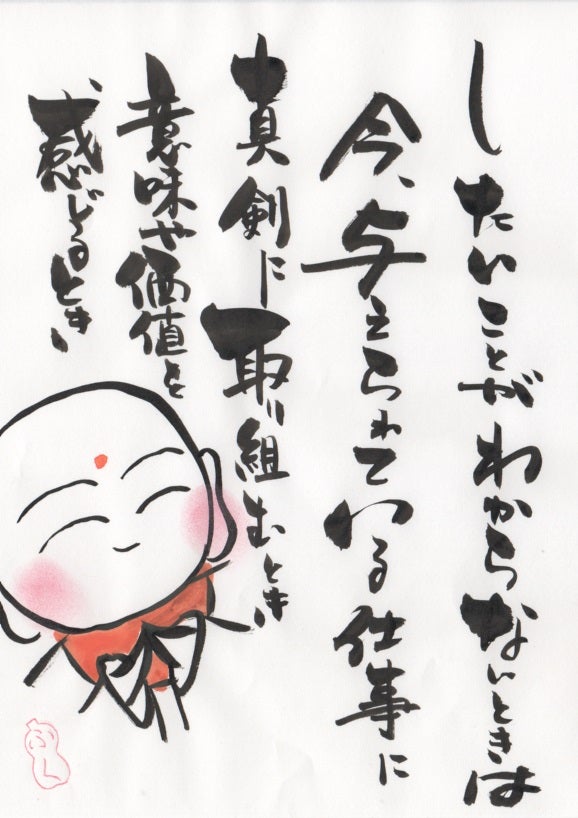 したいことがわからないときは
今、与えられている仕事に
真剣に取り組むとき
意味や価値を
感じるとき